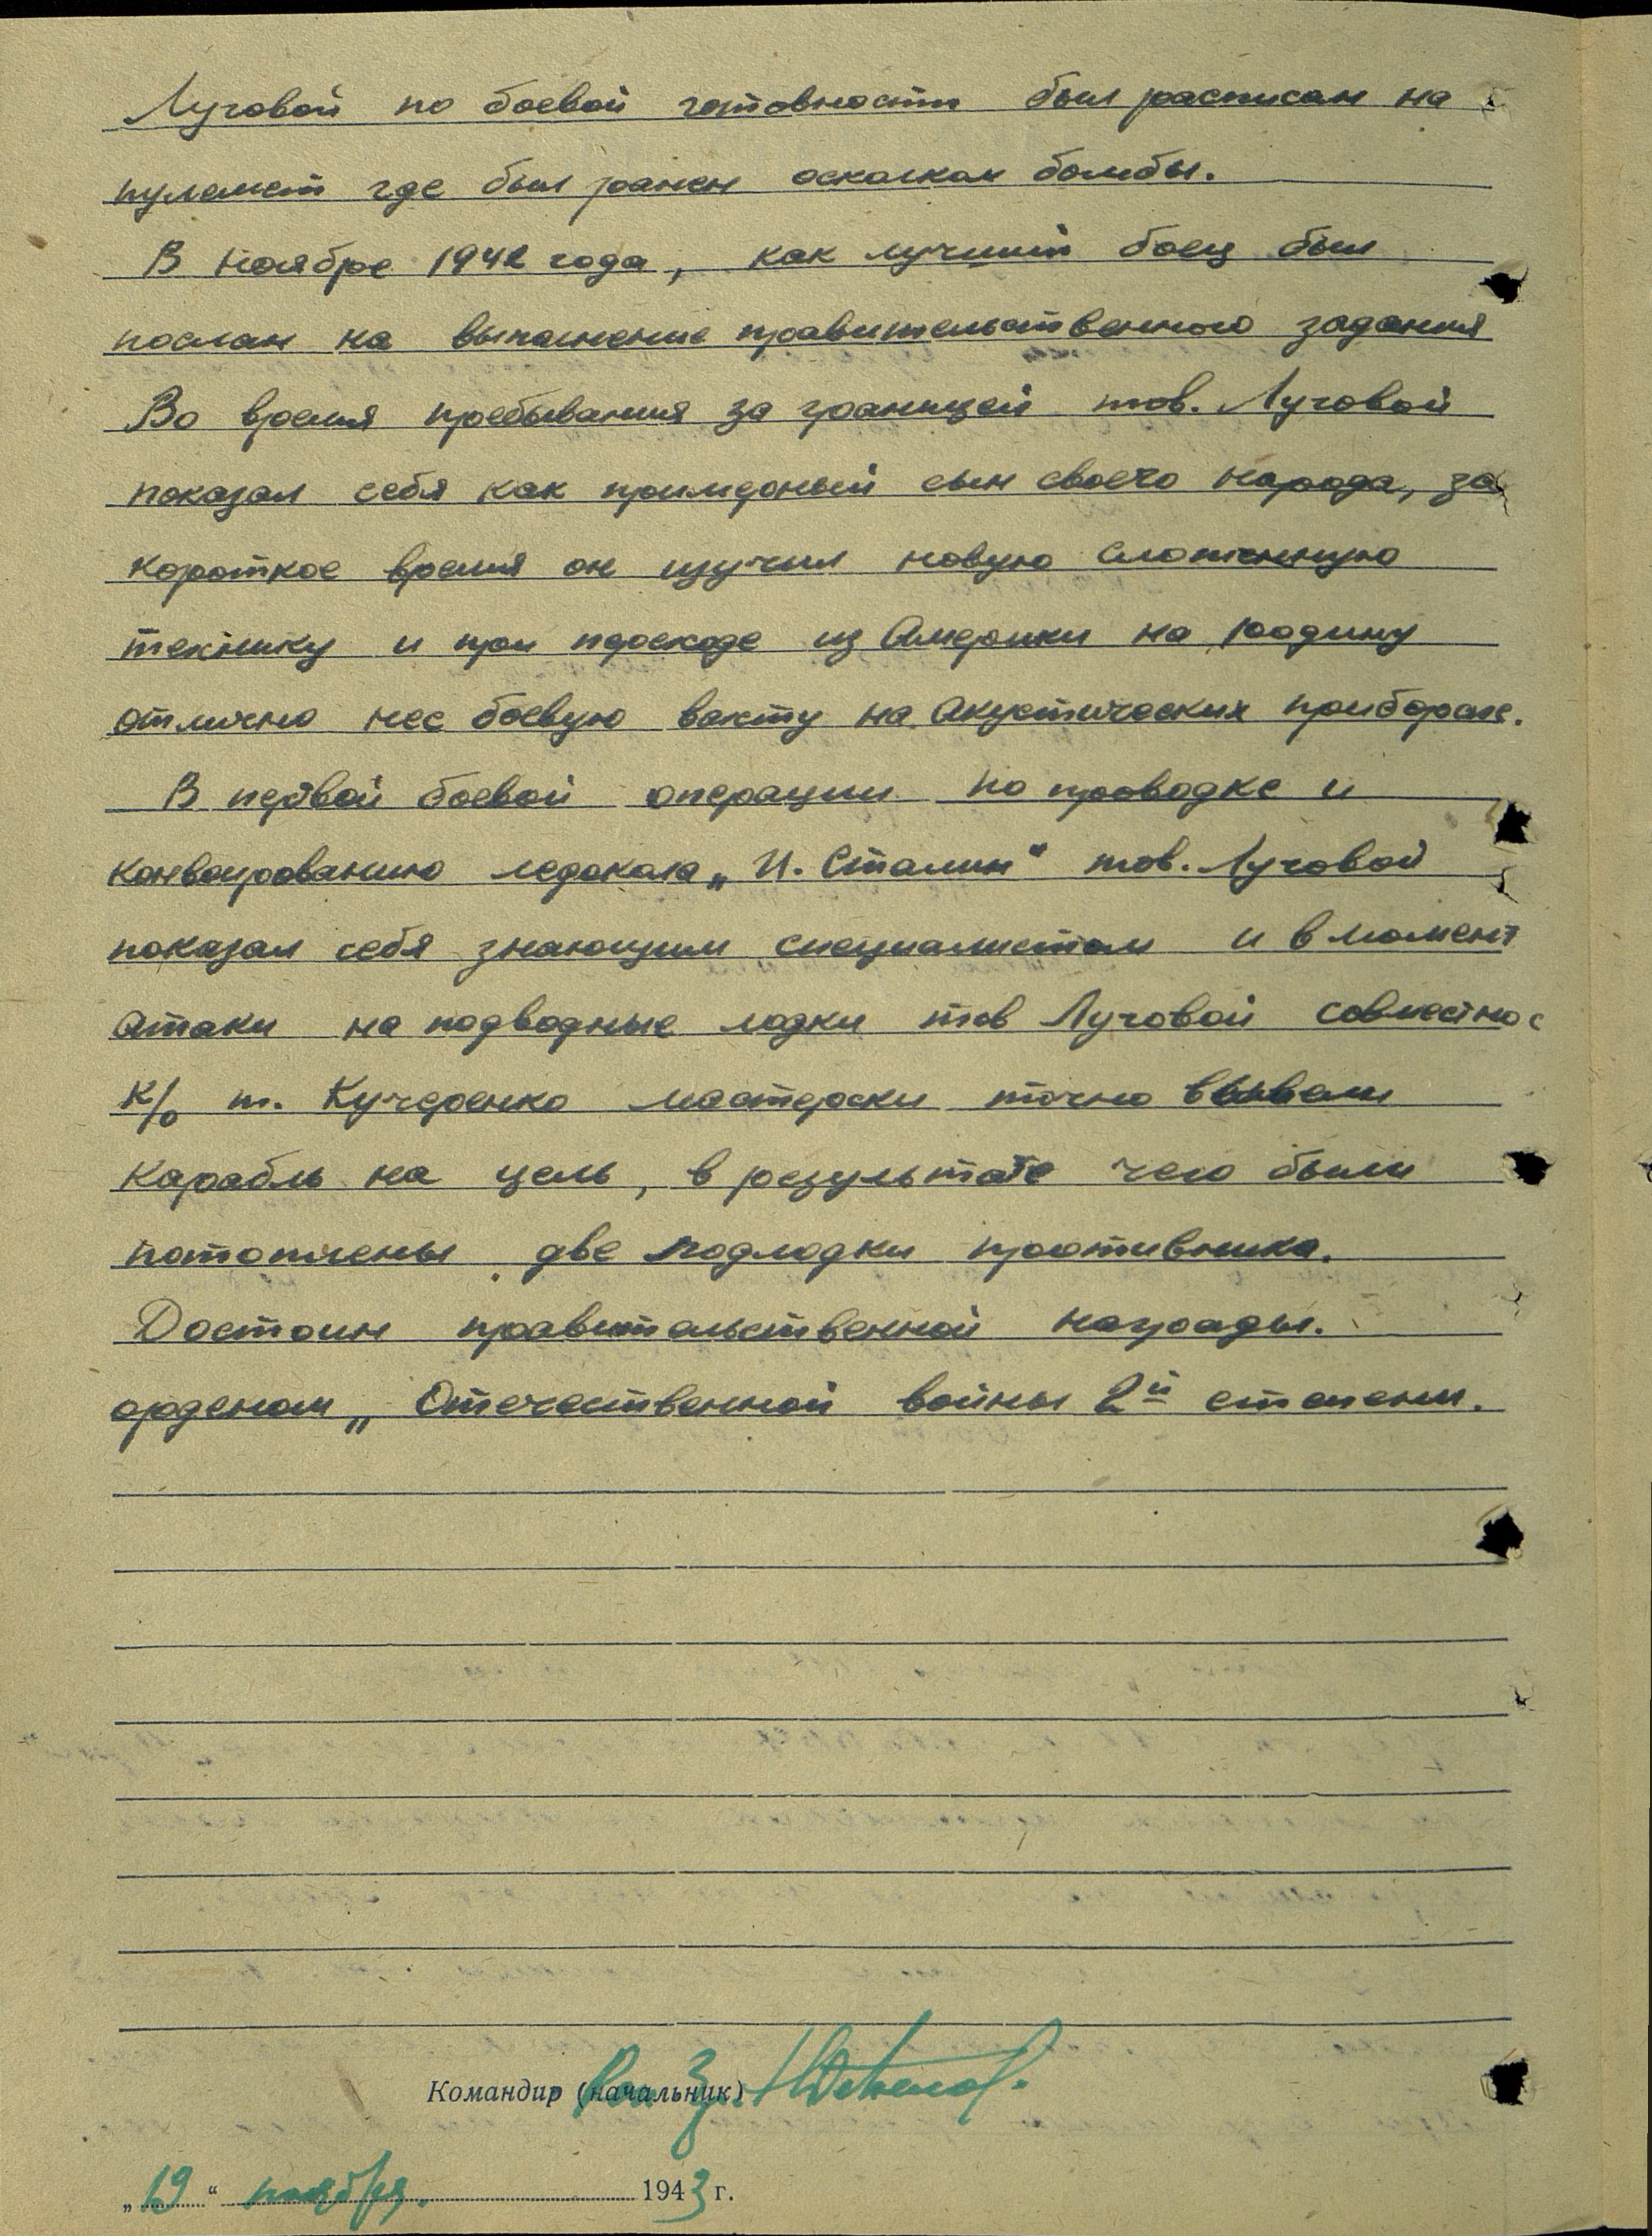 Луговой по боевой готовности был расписан на
пулемет где был ранен осколком бомбы.
В ноябре 1942 года, как лучший боец был
послан на выполнение правительственного задания
Во время пребывания за границей тов. Луговой
показал себя как примерный сын своего народа, за
короткое время он изучил новую сложенную
технику и при переходе из Америки на родину
отлично нес боевую вахту на акустических приборах.
В первой боевой операции по проводке и
конвоированию ледокола „И. Сталин" тов. Луговой
показал себя знающим специалистом и в момент
атаки на подводные лодки тов Луговой совместно с
К/о т. Кучеренко мастерски точно вывели
карабль на цель, в результате чего были
потоплены две подлодки противника.
Достоин правительственной награды.
орденом „ Отечественной войны 2й степени.
Командир (начальник)
„19" ноября. 1943 г.